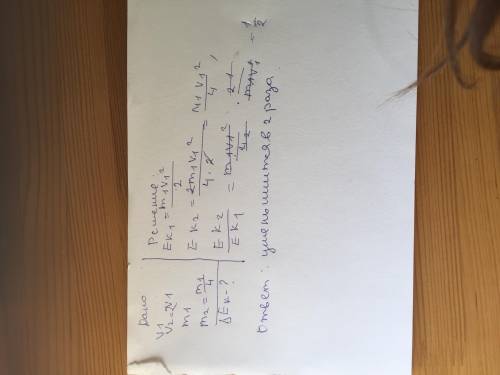 Дано
V1
V2=2V1
m1
m2=m1/4
ΔEк-?
Решение:
Eк1=m1V1²/2
Eк2=2m1V1²/4·2=m1V1²/4,
Eк2/Eк1=m1V1²/4 2·2 1/m1V1=1/2
Ответ: уменьшится в 2 раза.